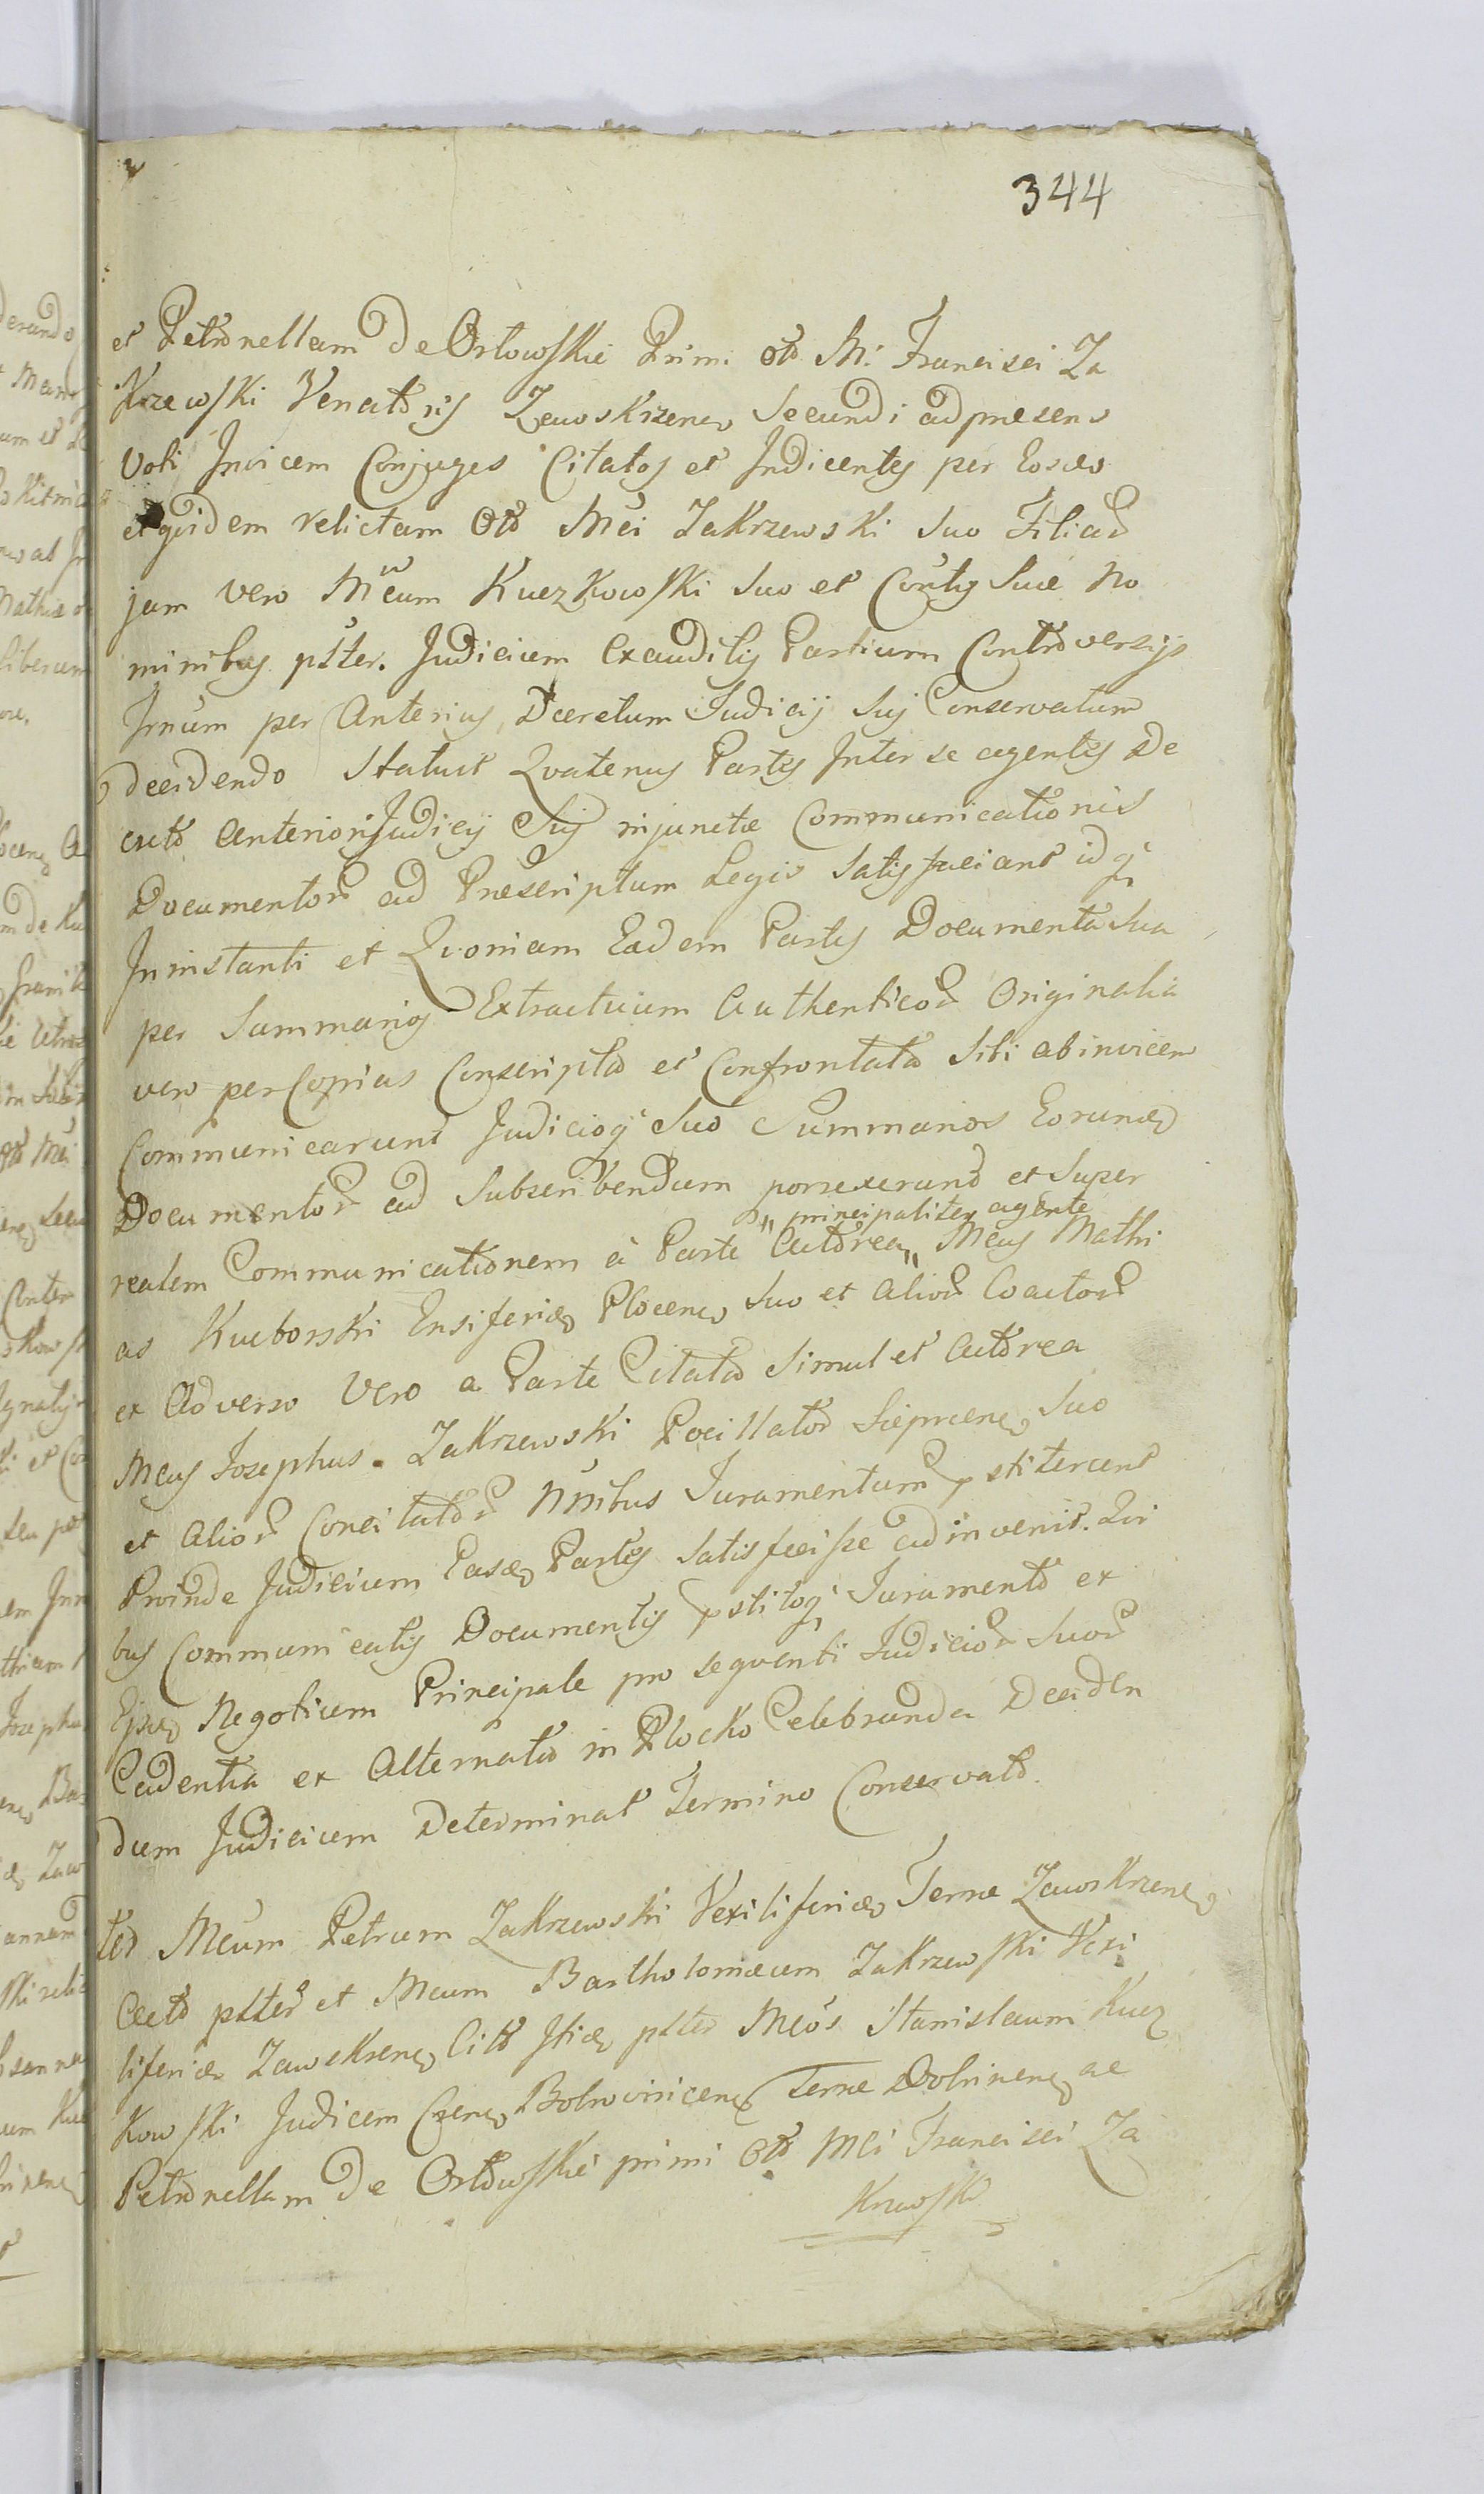 344
et Petronellam de Orłowskie Primi oto Mi Francisci Za
Krzewski Venatoris Zawskrzenẹ Secundi ad præsens
Voti Invicem Conjuges Citatos et Indicentes per Eosdẹ
et quidem relictam Oto Mei ZaKrzewski suo Filiar
jam vero Meum KuczKowski suo et Contis suæ No
minibus pster. Judicium Exauditis Partium Controversijs
Jrnum per Anterius Decretum Judicij Suj Conservatum
decidendo Statuit Quatenus Partes Inter se agentes De
creto anteriori Judicij Suj injunctæ Communicationis
Documentor ad Præscriptum Legis Satisfaciant idq
In instanti et Quoniam Eædem Partes Documenta Sua
per Summarios Extractuum Authenticor Originalia
vero per Copias Conscripta et Confrontata Sibi ab invicem
Communicarunt Judicioq Suo Summarios Eorundẹ
Documentor ad Subscribendum porrexerunt et Super
principaliter agente
realem Communicationem a Parte Actorea Meus Mathi
as Kuborski Ensiferidẹ Plocenẹ Suo et Alior Coactor
ex Adverso Vero a Parte Citata Simul et Actorea
Meus Josephus ZaKrzewski Pocillator Sieprcenẹ Suo
et Alior Concitator Nnibus Juramentum pstiterunt
Proinde Judicium Easdẹ Partes Satisfecisse adinvenit. Qui
bus Communicatis Documentis pstitoq Juramento ex
Ejusdẹ Negotium Principale pro sequenti Judicior Suor
Cadentia ex Alternata in Plocko Celebranda Deciden
dum Judicium Determinat Termino Conservato.
ter Meum Petrum ZaKrzewski Vexiliferidẹ Terræ Zawskrzenẹ
Acto pster et Meum Bartholomæum ZaKrzewski Vexi
liferidẹ Zawskrzenẹ Cito Itidẹ pster Meos Stanislaum Kucz
Kowski Judicem Czenẹ Bobrovnicenẹ Terræ Dobrinenẹ ac
Petronellam de Orłowskie primi Oto Mei Francisci Za
Krzewski